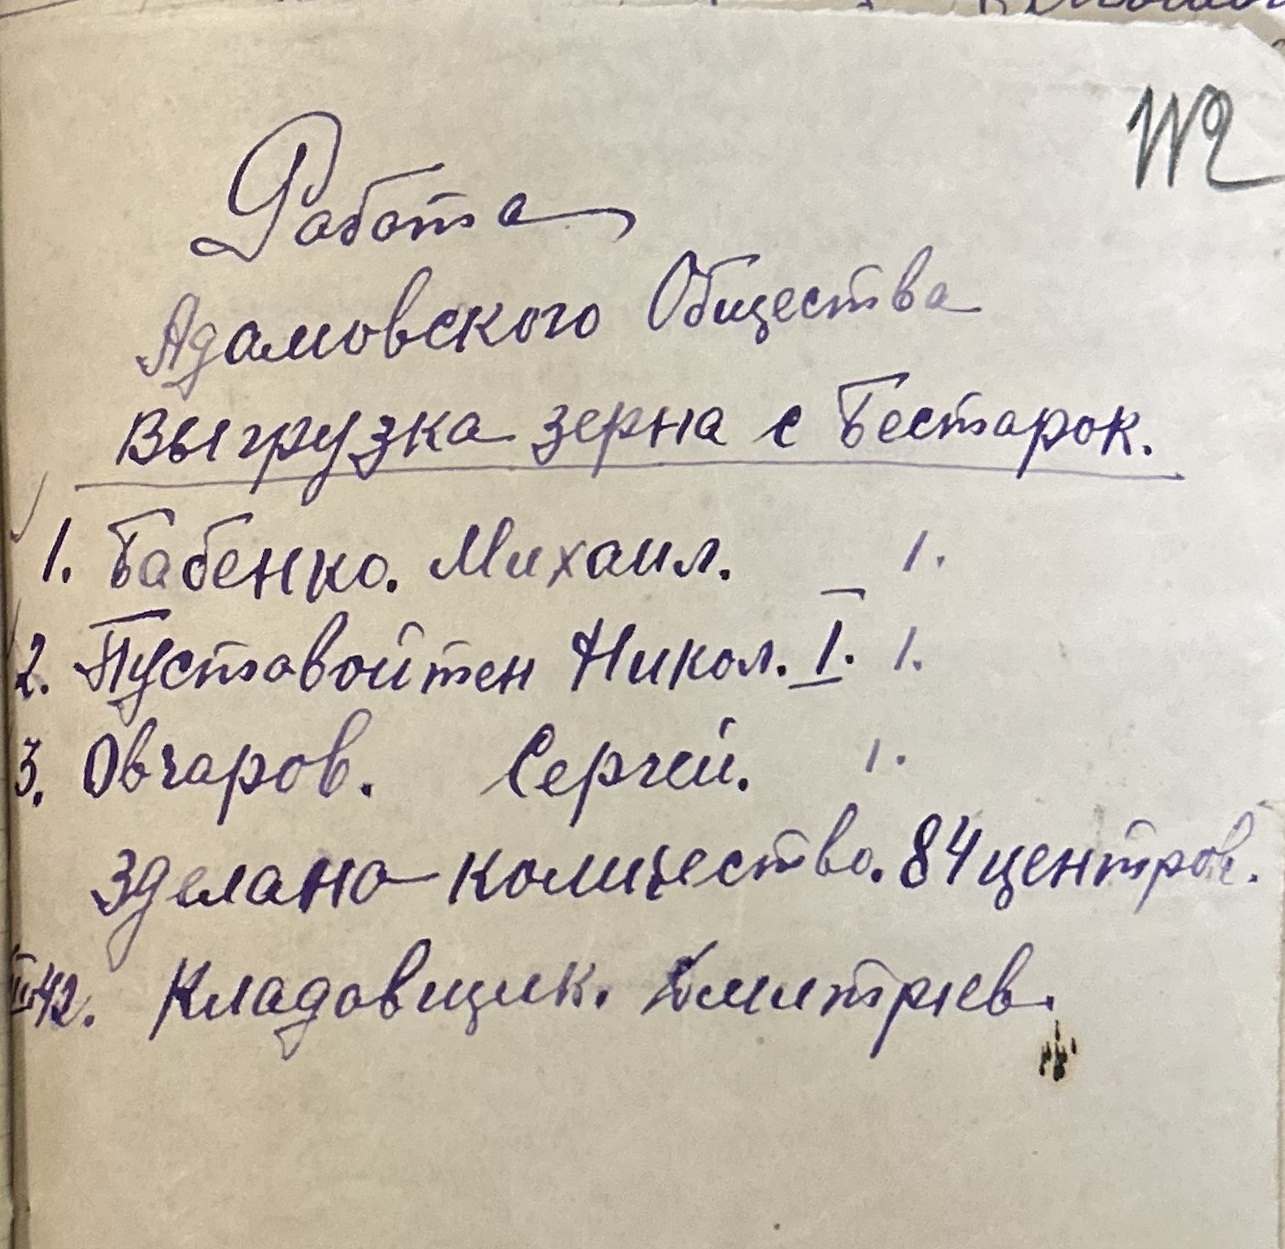 №2
Работа
Адамовского Общества
выгрузка зерна с Бестарок.
1. Бабенко. Михаил. 1.
2. Пуставойтен Никол. I. 1.
3. Овчаров. Сергей. 1.
Зделано количество. 84 центров.
42. Кладовщик. Дмитриев.